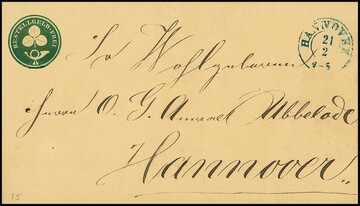 BESTELLGELD-FREI
HANNOVER
21
3
4-5
Sr Wohlgeboren
Herrn O. G. Ubbelode
Hannover